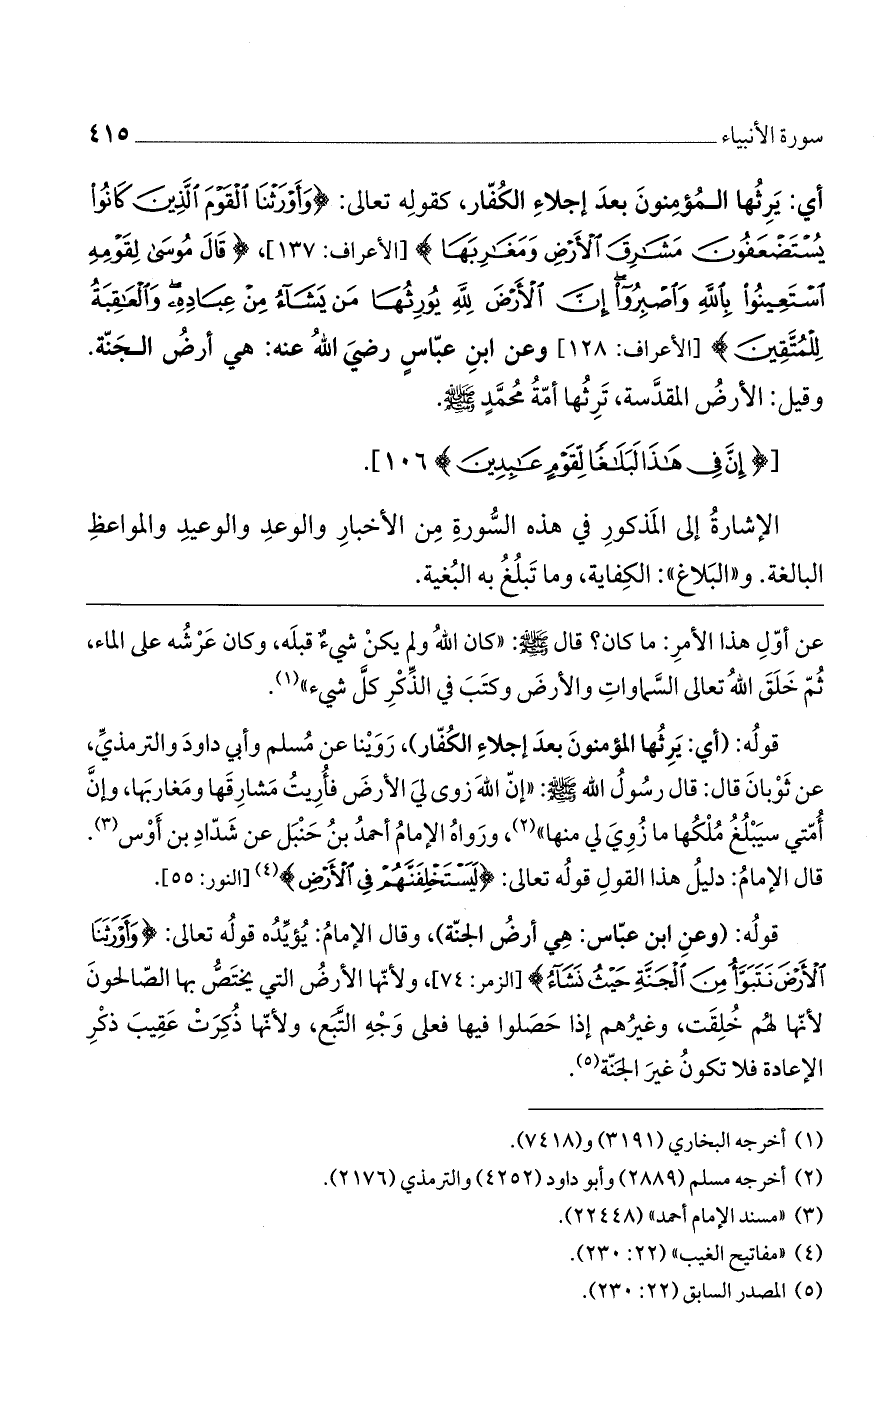 سورة الأنبياء ٤١٥
أي: يَرِثُها المُؤمِنونَ بعدَ إجلاءِ الكُفّار، كقولِه تعالى: ﴿وَأَوْرَثْنَا ٱلْقَوْمَ ٱلَّذِينَ كَانُوا۟
يُسْتَضْعَفُونَ مَشَٰرِقَ ٱلْأَرْضِ وَمَغَٰرِبَهَا﴾ [الأعراف: ١٣٧]، ﴿قَالَ مُوسَىٰ لِقَوْمِهِ
ٱسْتَعِينُوا۟ بِٱللَّهِ وَٱصْبِرُوٓا۟ۖ إِنَّ ٱلْأَرْضَ لِلَّهِ يُورِثُهَا مَن يَشَآءُ مِنْ عِبَادِهِۦۖ وَٱلْعَٰقِبَةُ
لِلْمُتَّقِينَ﴾ [الأعراف: ١٢٨] وعن ابنِ عبّاسٍ رضيَ اللهُ عنه: هي أرضُ الجَنّة.
وقيل: الأرضُ المقدَّسة، تَرِثُها أمّةُ مُحمَّدٍ ﷺ.
[﴿إِنَّ فِى هَٰذَا لَبَلَٰغًا لِّقَوْمٍ عَٰبِدِينَ﴾ ١٠٦].
الإشارةُ إلى المَذكورِ في هذه السُّورةِ مِن الأخبارِ والوعدِ والوعيدِ والمواعظِ
البالغة. و«البَلاغ»: الكِفاية، وما تَبلُغُ به البُغية.
عن أوّلِ هذا الأمرِ: ما كان؟ قال ﷺ: «كان اللهُ ولم يكنْ شيءٌ قبلَه، وكان عَرْشُه على الماء،
ثُمّ خَلَقَ اللهُ تعالى السَّماواتِ والأرضَ وكتَبَ في الذِّكْرِ كلَّ شيء»(١).
قولُه: (أي: يَرِثُها المؤمنونَ بعدَ إجلاءِ الكُفّار)، رَوَيْنا عن مُسلم وأبي داودَ والترمذيِّ،
عن ثَوْبانَ قال: قال رسُولُ الله ﷺ: «إنّ اللهَ زوى ليَ الأرضَ فأُرِيتُ مَشارِقَها ومَغاربَها، وإنَّ
أُمّتي سيَبْلُغُ مُلْكُها ما زُوِيَ لي منها»(٢)، ورَواهُ الإمامُ أحمدُ بنُ حَنْبَل عن شَدّادِ بن أَوْس(٣).
قال الإمامُ: دليلُ هذا القولِ قولُه تعالى: ﴿لَيَسْتَخْلِفَنَّهُمْ فِى ٱلْأَرْضِ﴾(٤) [النور: ٥٥].
قولُه: (وعنِ ابن عبّاس: هِي أرضُ الجنّة)، وقال الإمامُ: يُؤيِّدُه قولُه تعالى: ﴿وَأَوْرَثَنَا
ٱلْأَرْضَ نَتَبَوَّأُ مِنَ ٱلْجَنَّةِ حَيْثُ نَشَآءُ﴾ [الزمر: ٧٤]، ولأنّها الأرضُ التي يختَصُّ بها الصّالحونَ
لأنّها لهُم خُلِقَت، وغيرُهم إذا حَصَلوا فيها فعلى وَجْهِ التَّبَع، ولأنّها ذُكِرَتْ عَقِيبَ ذكْرِ
الإعادة فلا تكونُ غيرَ الجَنّة(٥).
(١) أخرجه البخاري (٣١٩١) و(٧٤١٨).
(٢) أخرجه مسلم (٢٨٨٩) وأبو داود (٤٢٥٢) والترمذي (٢١٧٦).
(٣) «مسند الإمام أحمد» (٢٢٤٤٨).
(٤) «مفاتيح الغيب» (٢٢: ٢٣٠).
(٥) المصدر السابق (٢٢: ٢٣٠).